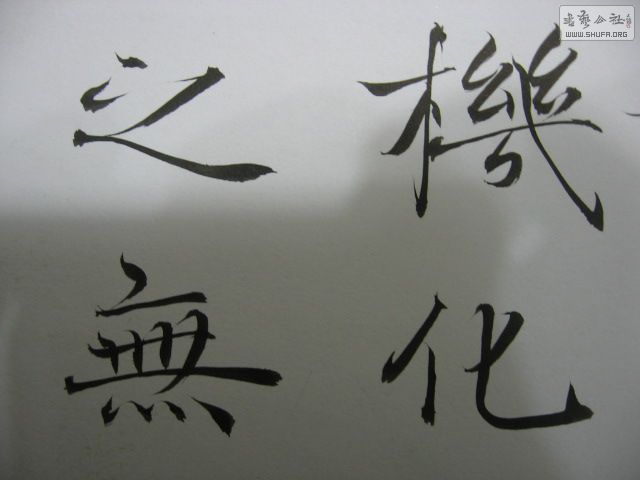 機化
之無
书艺公社
WWW.SHUFA.ORG